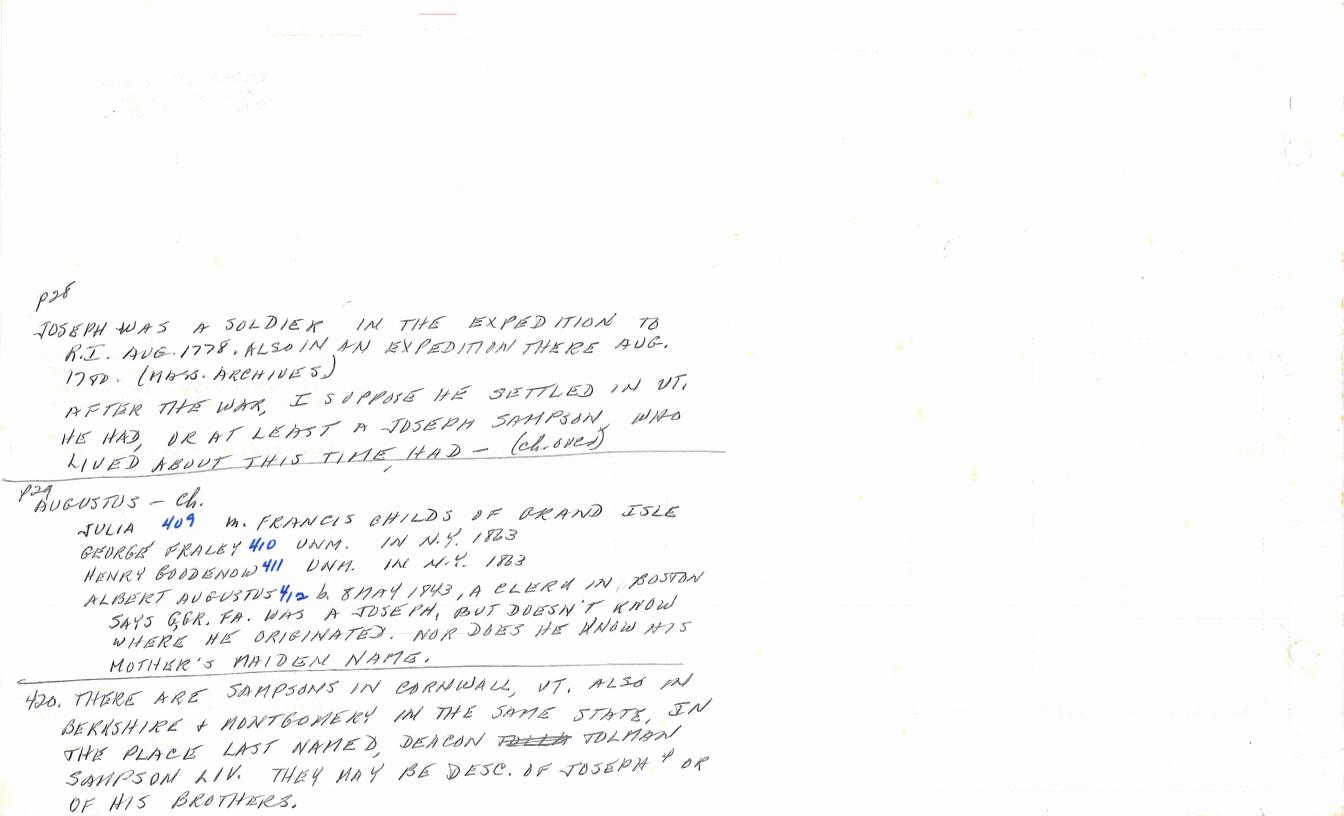 p28
JOSEPH WAS A SOLDIER IN THE EXPEDITION TO
R.I. AUG. 1778. ALSO IN AN EXPEDITION THERE AUG.
1780. (MASS. ARCHIVES)
AFTER THE WAR, I SUPPOSE HE SETTLED IN VT.
HE HAD, OR AT LEAST A JOSEPH SAMPSON, WHO
LIVED ABOUT THIS TIME, HAD — (ch. over)
p29
AUGUSTUS — ch.
JULIA 409 m. FRANCIS CHILDS OF GRAND ISLE
GEORGE FRALEY 410 UNM. IN N.Y. 1863
HENRY GOODENOW 411 UNM. IN N.Y. 1863
ALBERT AUGUSTUS 412 b. 8 MAY 1843, A CLERK IN BOSTON
SAYS G,GR. FA. WAS A JOSEPH, BUT DOESN'T KNOW
WHERE HE ORIGINATED. NOR DOES HE KNOW HIS
MOTHER'S MAIDEN NAME.
420. THERE ARE SAMPSONS IN CORNWALL, VT. ALSO IN
BERKSHIRE & MONTGOMERY IN THE SAME STATE, IN
THE PLACE LAST NAMED, DEACON TOLMAN
SAMPSON LIV. THEY MAY BE DESC. OF JOSEPH & OR
OF HIS BROTHERS.